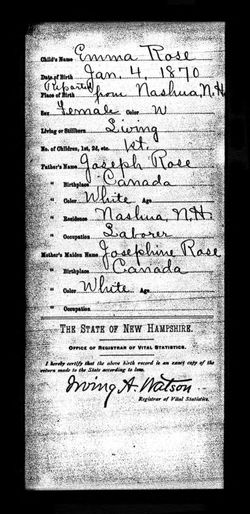 Child's Name Emma Rose
Date of Birth Jan. 4, 1870
Reported
Place of Birth from Nashua, N.H.
Sex Female Color W
Living or Stillborn Living
No. of Children, 1st, 2d, etc. 1st.
Father's Name Joseph Rose
" Birthplace Canada
" Color White Age
" Residence Nashua, N.H.
" Occupation Laborer
Mother's Maiden Name Josephine Rose
" Birthplace Canada
" Color White Age
" Occupation
THE STATE OF NEW HAMPSHIRE.
OFFICE OF REGISTRAR OF VITAL STATISTICS.
I hereby certify that the above birth record is an exact copy of the
return made to the State according to law.
Irving A. Watson
Registrar of Vital Statistics.